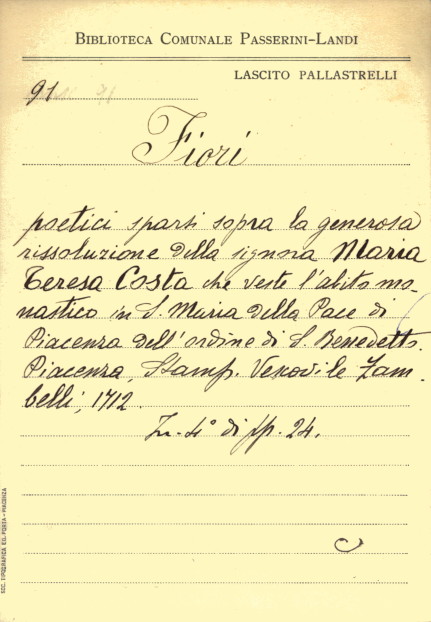 BIBLIOTECA COMUNALE PASSERINI-LANDI
LASCITO PALLASTRELLI
91
Fiori
poetici sparsi sopra la generosa
rissoluzione della signora Maria
Teresa Costa che veste l'abito mo-
nastico in S. Maria della Pace di
Piacenza dell'ordine di S. Benedetto.
Piacenza, Stamp. Vescovile Zam-
belli, 1712.
In-4° di pp. 24.
SOC. TIPOGRAFICA ED. PORTA - PIACENZA